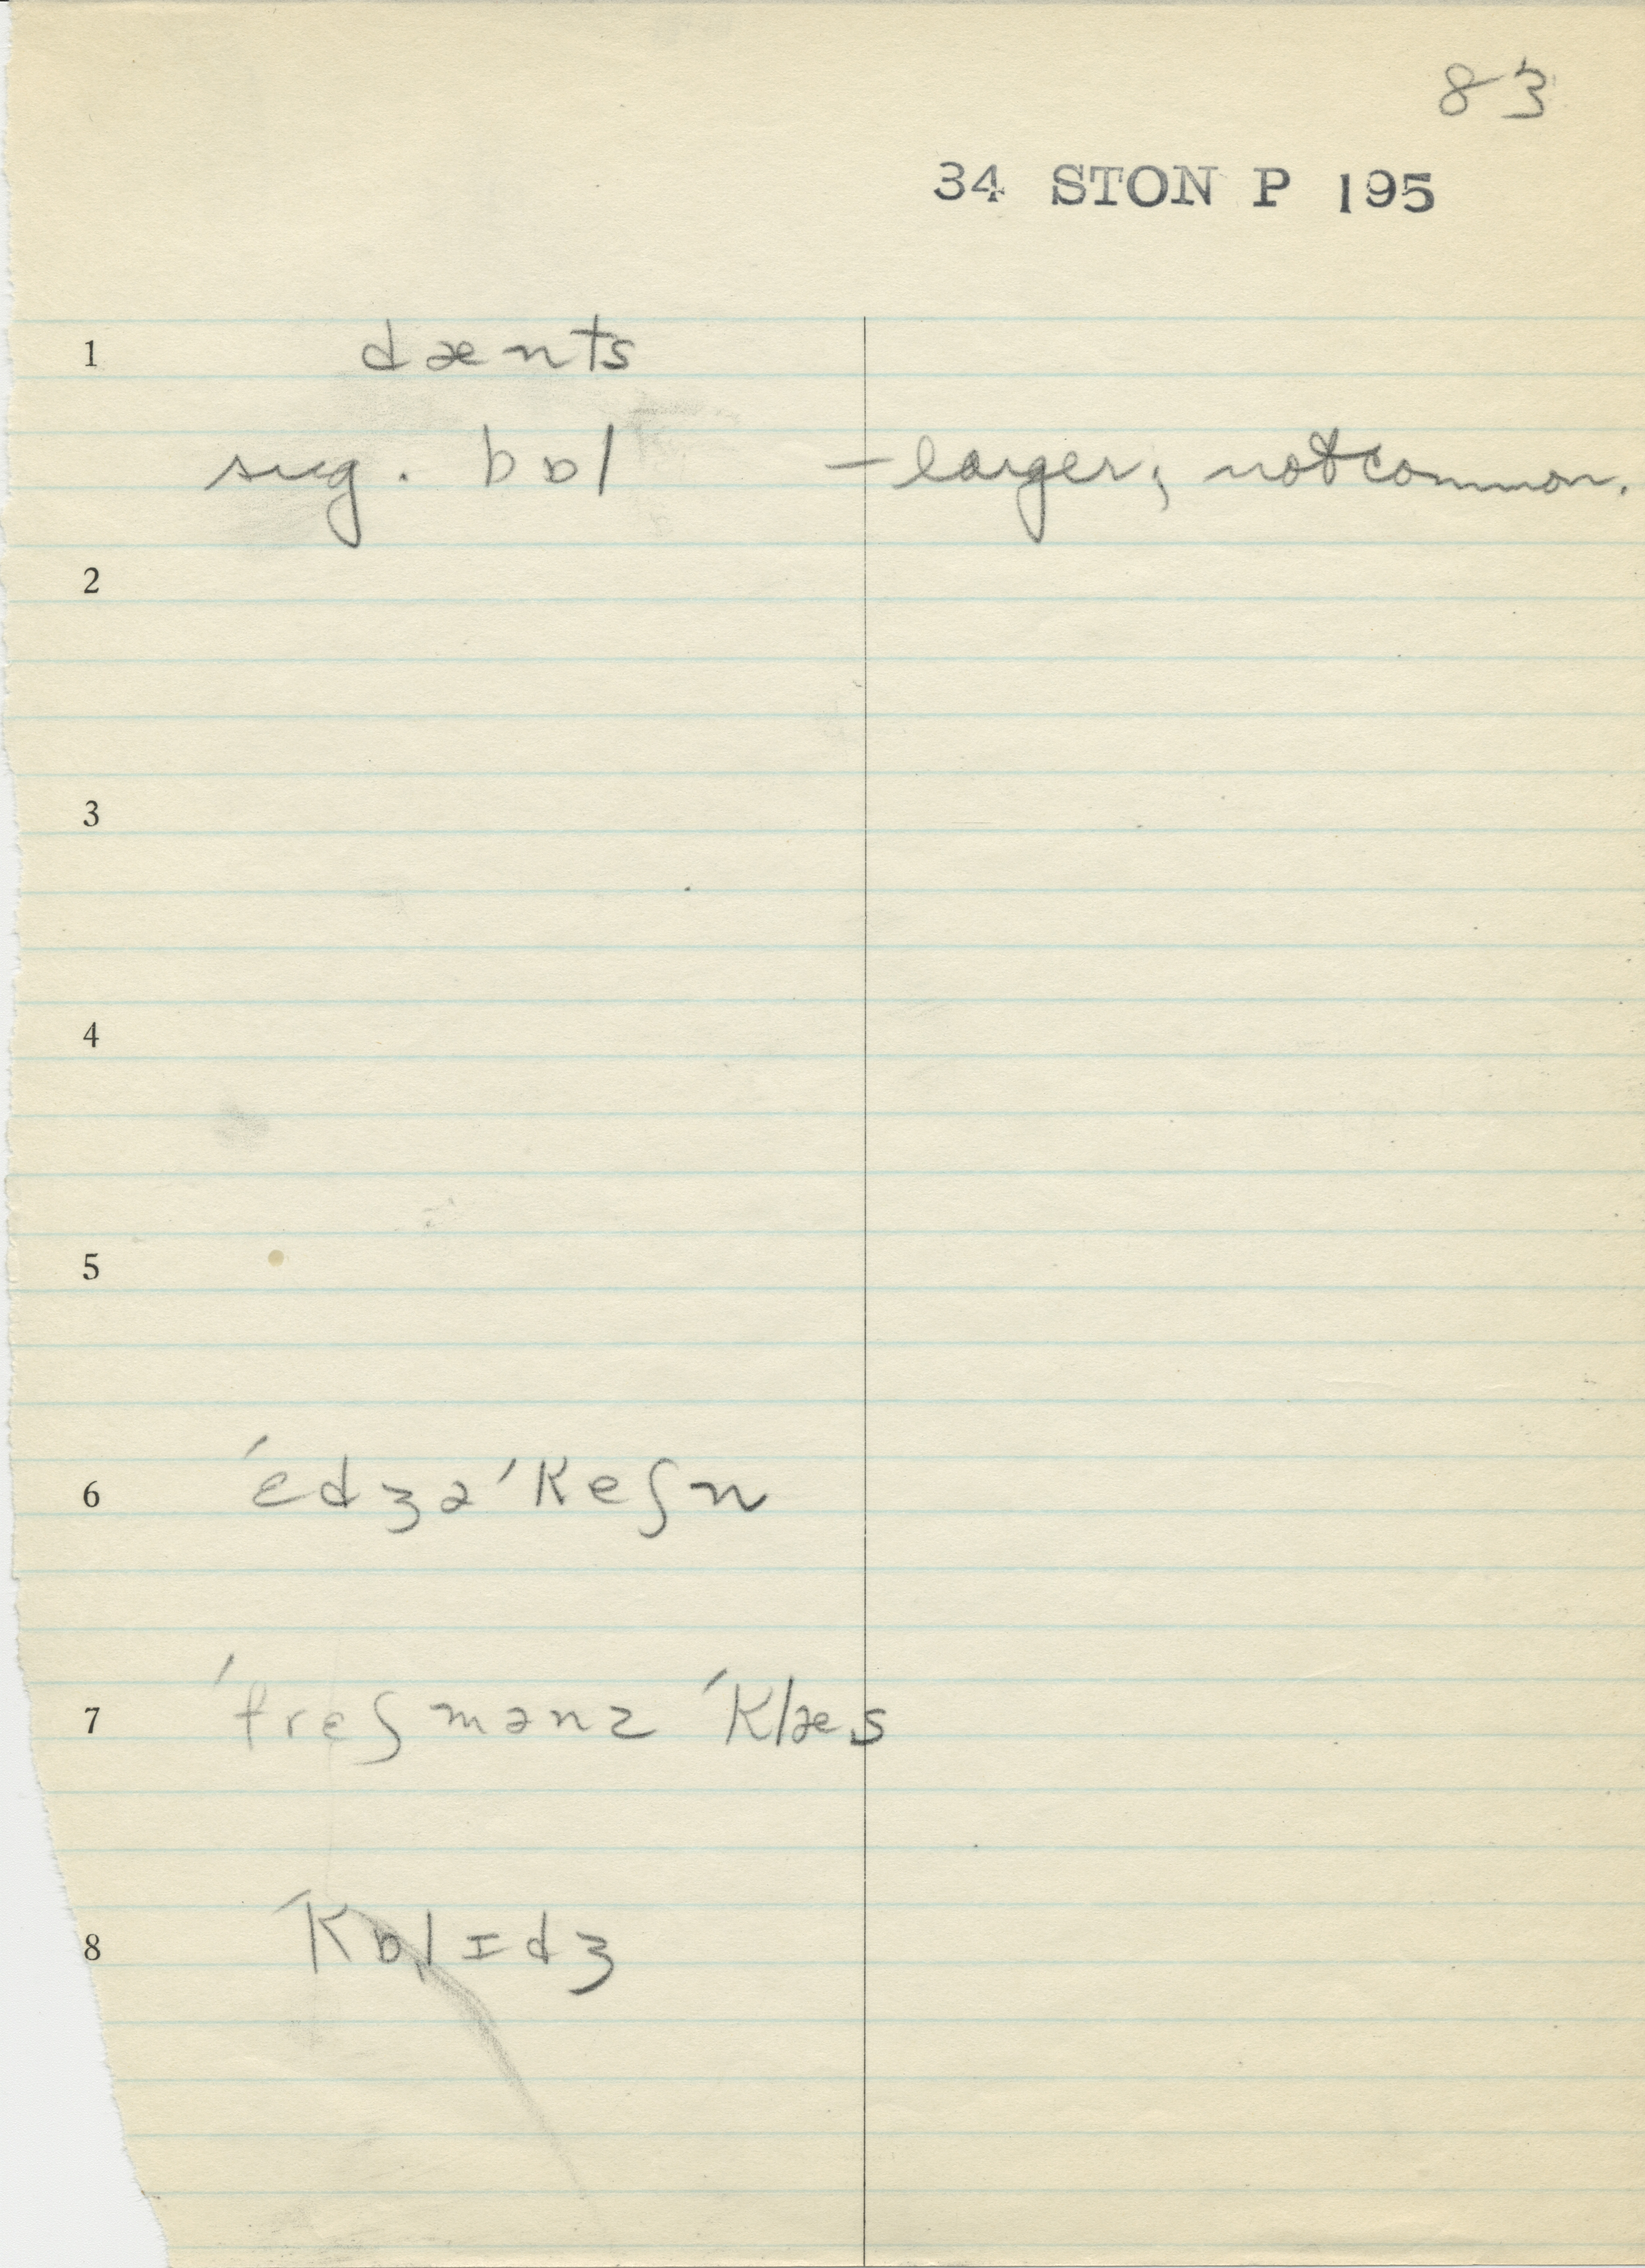 83
34 STON P 195
1 dænts
sug. bɒl – larger; not common.
2
3
4
5
6 ˈɛdʒəˈkeʃn
7 ˈfrɛʃmənz ˈklæs
8 ˈkɒlɪdʒ